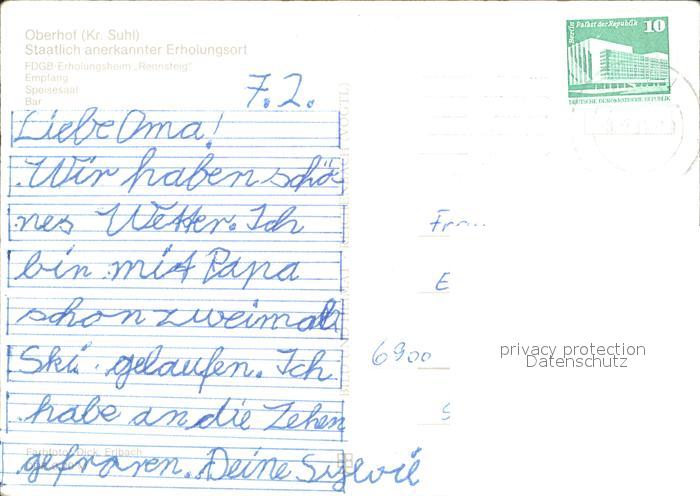 Oberhof (Kr. Suhl)
Staatlich anerkannter Erholungsort
FDGB-Erholungsheim „Rennsteig"
Empfang
Speisesaal
Bar
7.2.
Liebe Oma!
Wir haben schö-
nes Wetter. Ich
bin mit Papa
schon zweimal
Ski gelaufen. Ich
habe an die Zehen
gefroren. Deine Sylvie
Farbfoto: Dick, Erlbach
Berlin Palast der Republik 10
DEUTSCHE DEMOKRATISCHE REPUBLIK
E
6900
S
privacy protection
Datenschutz